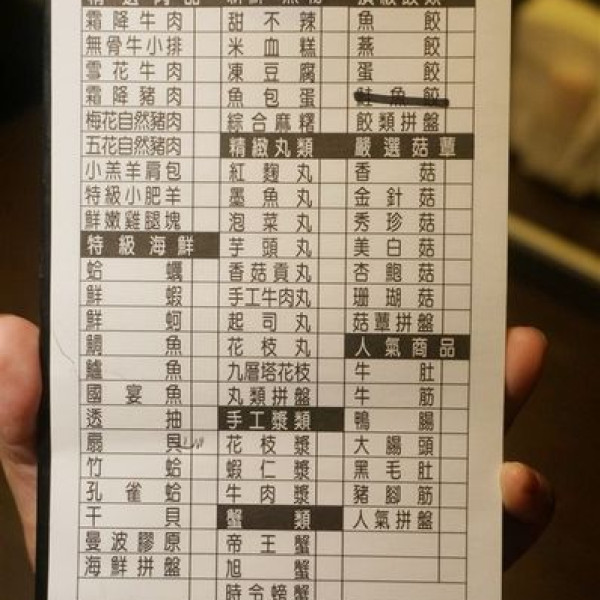 霜降牛肉
無骨牛小排
雪花牛肉
霜降豬肉
梅花自然豬肉
五花自然豬肉
小羔羊肩包
特級小肥羊
鮮嫩雞腿塊
特級海鮮
蛤蠣
鮮蝦
鮮蚵
鯛魚
鱸魚
國宴魚
透抽
扇貝
竹蛤
孔雀蛤
干貝
曼波膠原
海鮮拼盤
甜不辣
米血糕
凍豆腐
魚包蛋
綜合麻糬
精緻丸類
紅麴丸
墨魚丸
泡菜丸
芋頭丸
香菇貢丸
手工牛肉丸
起司丸
花枝丸
九層塔花枝
丸類拼盤
手工漿類
花枝漿
蝦仁漿
牛肉漿
蟹類
帝王蟹
旭蟹
時令螃蟹
魚餃
燕餃
蛋餃
鮭魚餃
餃類拼盤
嚴選菇蕈
香菇
金針菇
秀珍菇
美白菇
杏鮑菇
珊瑚菇
菇蕈拼盤
人氣商品
牛肚
牛筋
鴨腸
大腸頭
黑毛肚
豬腳筋
人氣拼盤